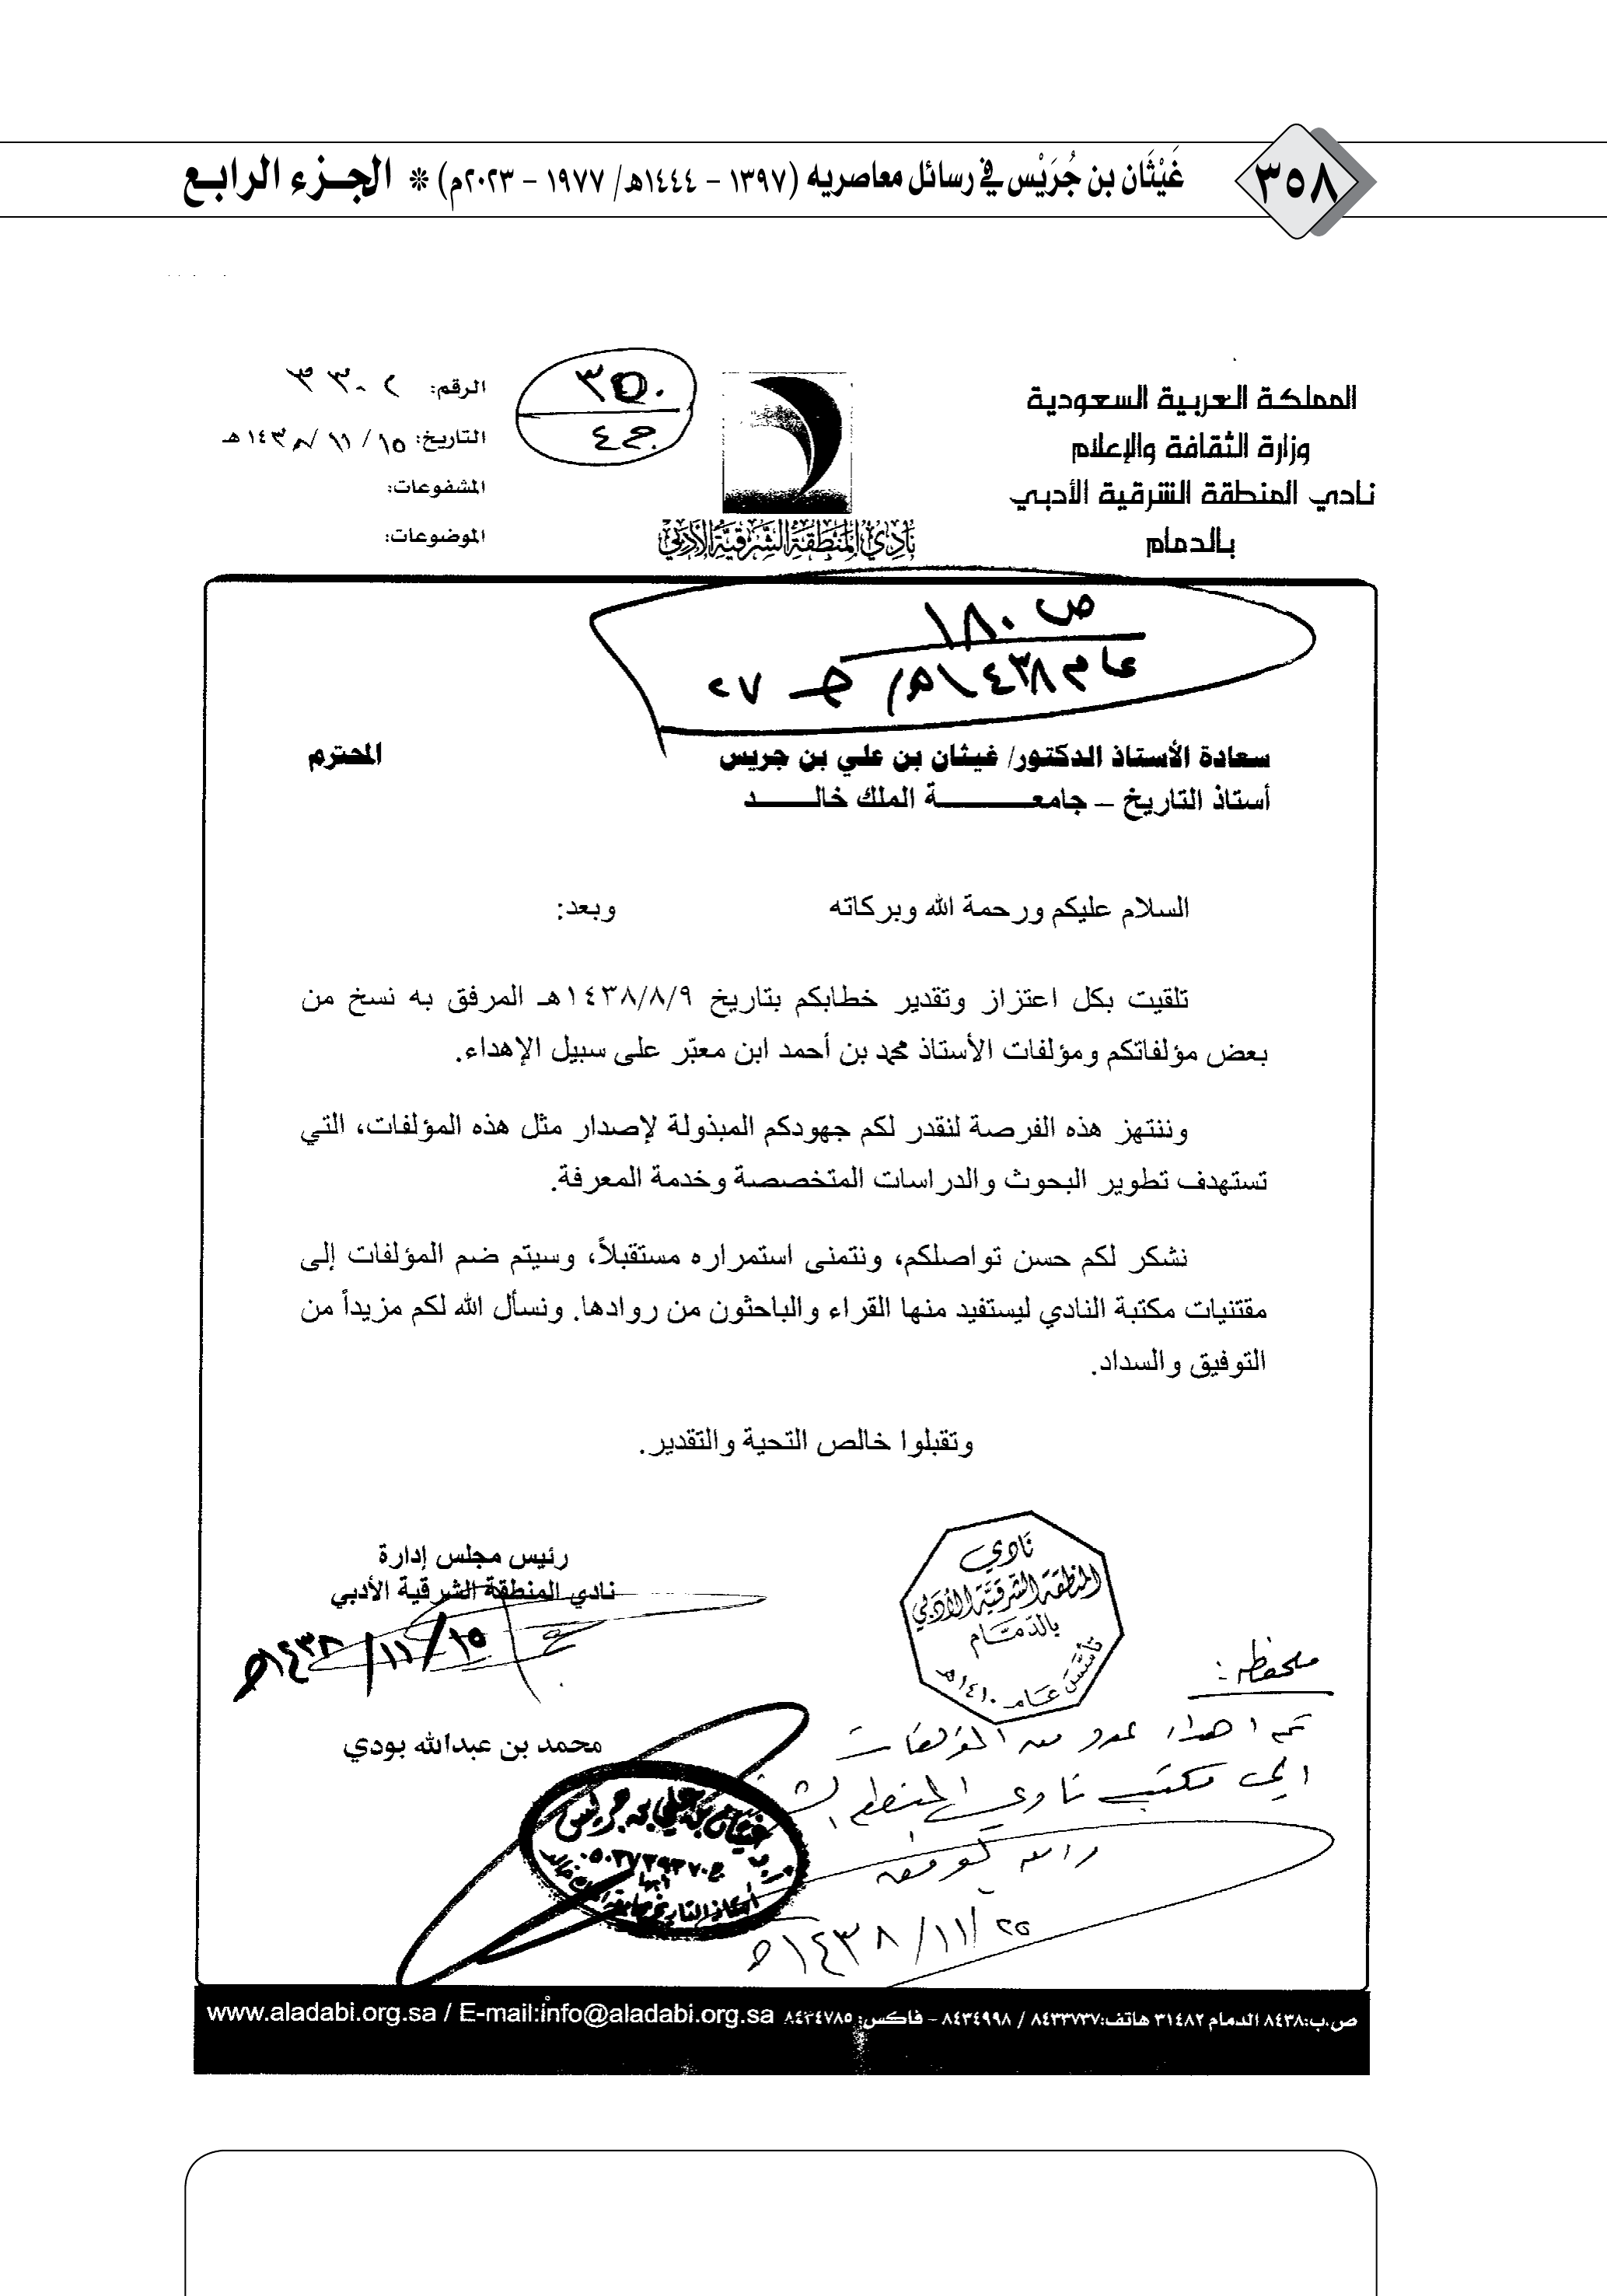 ٣٥٨
غَيْثَان بن جُرَيْس في رسائل معاصريه (١٣٩٧ - ١٤٤٤هـ/ ١٩٧٧ - ٢٠٢٣م) * الجزء الرابع
المملكة العربية السعودية
وزارة الثقافة والإعلام
نادي المنطقة الشرقية الأدبي
بالدمام
نادي المنطقة الشرقية الأدبي
٣٥٠
ج٤
الرقم:
التاريخ: ١٥/ ١١/ ١٤٣٨هـ
المشفوعات:
الموضوعات:
ص ١٨٠
عام ١٤٣٨هـ/
سعادة الأستاذ الدكتور/ غيثان بن علي بن جريس المحترم
أستاذ التاريخ – جامعـــــــة الملك خالـــــد
السلام عليكم ورحمة الله وبركاته وبعد:
تلقيت بكل اعتزاز وتقدير خطابكم بتاريخ ١٤٣٨/٨/٩هـ المرفق به نسخ من
بعض مؤلفاتكم ومؤلفات الأستاذ محمد بن أحمد ابن معبّر على سبيل الإهداء.
وننتهز هذه الفرصة لنقدر لكم جهودكم المبذولة لإصدار مثل هذه المؤلفات، التي
تستهدف تطوير البحوث والدراسات المتخصصة وخدمة المعرفة.
نشكر لكم حسن تواصلكم، ونتمنى استمراره مستقبلاً، وسيتم ضم المؤلفات إلى
مقتنيات مكتبة النادي ليستفيد منها القراء والباحثون من روادها. ونسأل الله لكم مزيداً من
التوفيق والسداد.
وتقبلوا خالص التحية والتقدير.
رئيس مجلس إدارة
نادي المنطقة الشرقية الأدبي
١٥/ ١١/ ١٤٣٨هـ
محمد بن عبدالله بودي
نادي
المنطقة الشرقية الأدبي
بالدمام
تأسس عام ١٤١٠هـ
ملحظه:
تم اهداء عدد من المؤلفات
الى مكتبة نادي المنطقة
والله الموفق
٢٥/ ١١/ ١٤٣٨هـ
غيثان بن علي بن جريس
أبها
أستاذ التاريخ بجامعة الملك خالد
ص.ب:٨٤٣٨ الدمام ٣١٤٨٢ هاتف:٨٤٣٣٧٣٧ / ٨٤٣٤٩٩٨ - فاكس: ٨٤٣٤٧٨٥ www.aladabi.org.sa / E-mail:info@aladabi.org.sa